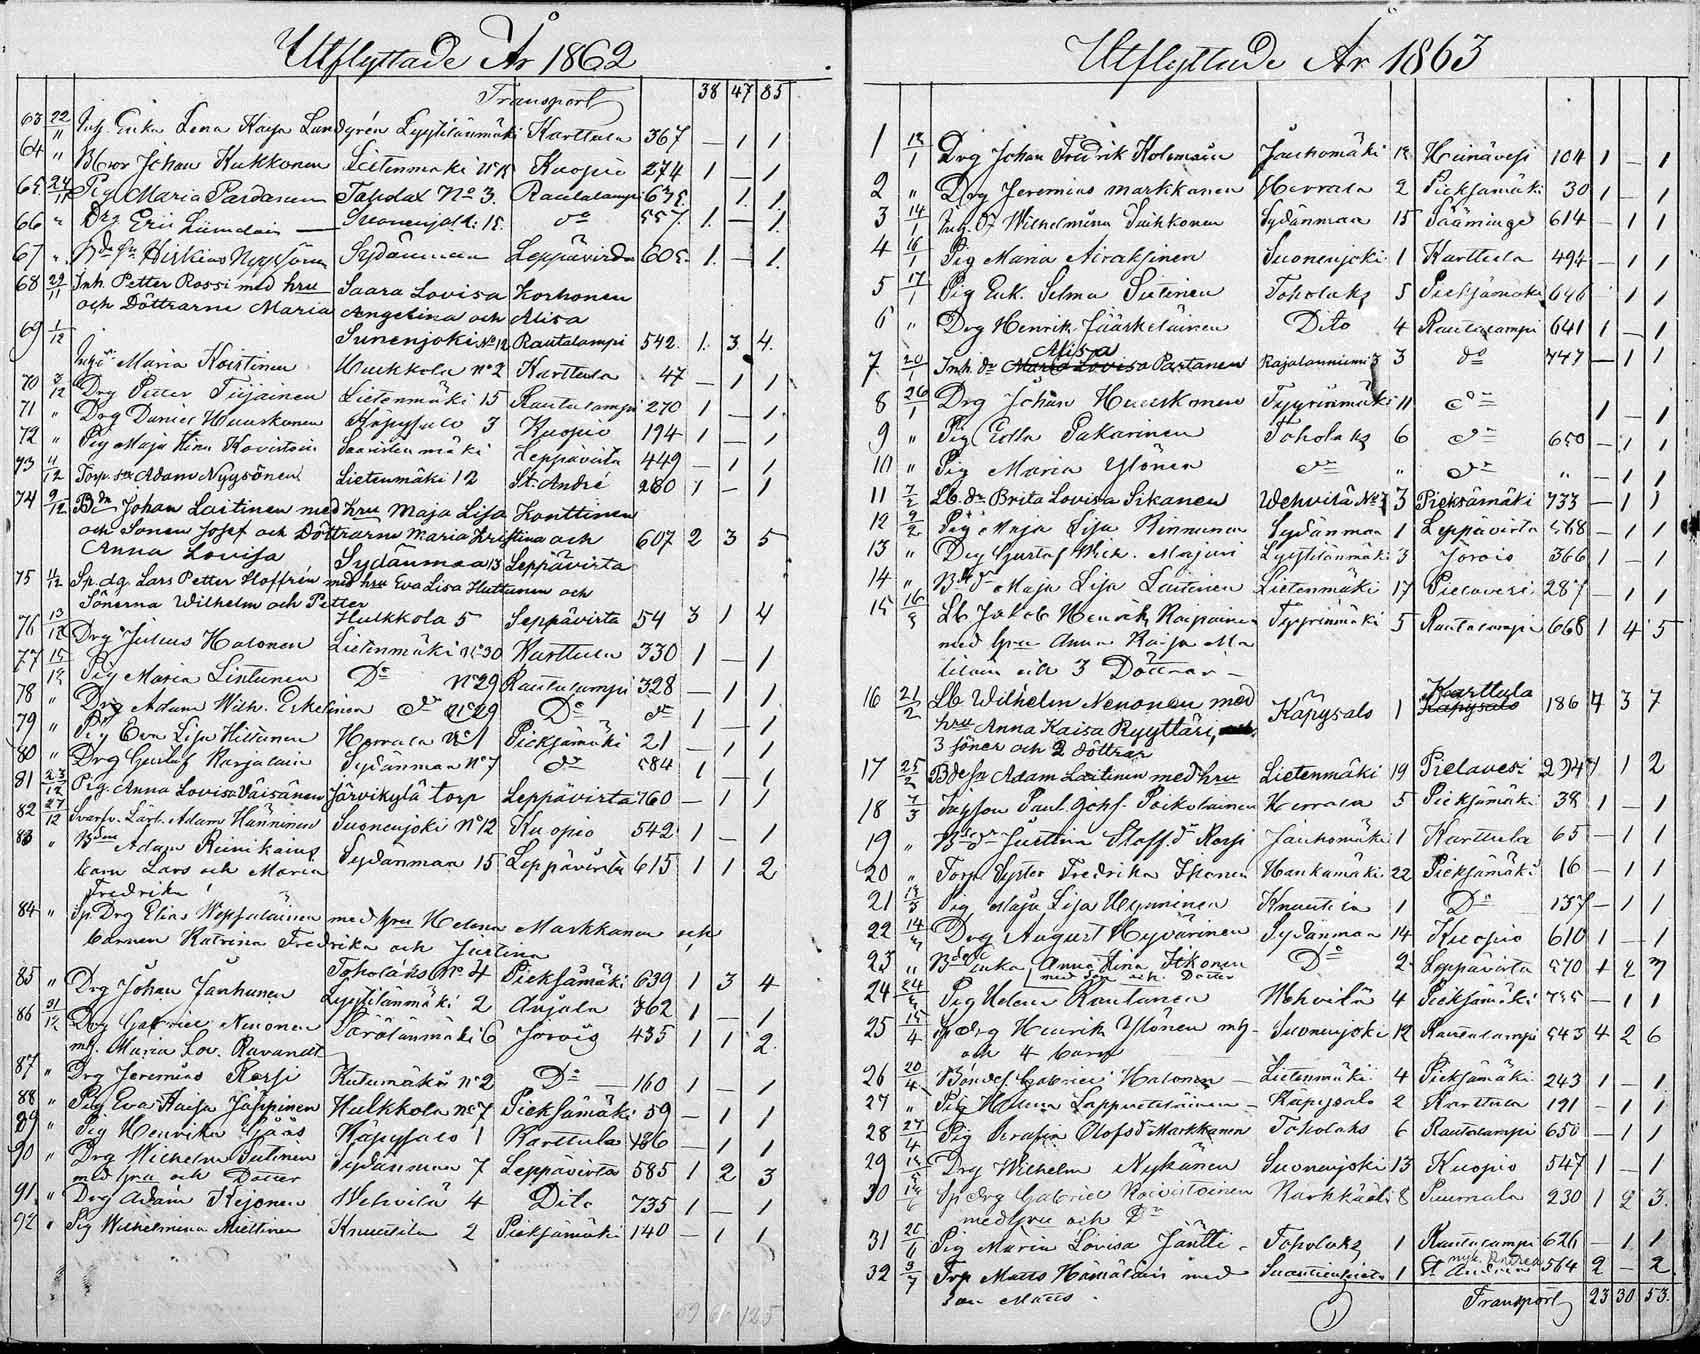 Utflyttade År 1862
Transport 38 47 85
63 22/11 Inh. Erika Lena Kaisa Lundgrén Lyytilänmäki Karttula 367 — 1 1
64 " Johan Kukkonen Lietenmäki Kuopio 274 1 — 1
65 24/11 Pig Maria Pardanen Toholax No 3. Rautalampi 635 1. 1
66 " Drg Eric Suonenjoki 15. do 557. 1. — 1.
67 " Hiskias Nyyssönen Sydänmaa Leppävirta 605. 1. — 1.
68 29/11 Inh. Petter Rossi med hru Saara Lovisa Korhonen
och Döttrarne Maria Angelina och Alisa
Sunenjoki No 12 Rautalampi 542. 1. 3. 4.
69 1/12 Maria Koistinen Hulkkola No 2 Karttula 47 — 1 1
70 3/12 Drg Petter Tiijainen Lietenmäki 15 Rautalampi 270 1 — 1
71 " Drg Daniel Huuskonen Käpysalo 3 Kuopio 194 1 — 1
72 " Pig Maja Stina Koivistoin Saaristenmäki Leppävirta 449 — 1 1
73 4/12 Adam Nyysönen Lietenmäki 12 St. André 260 1 — 1
74 9/12 Bdn Johan Laitinen med hru Maja Lisa Konttinen
och Sonen Josef och Döttrarne Maria Kristina och 607 2 3 5
Anna Lovisa Sydänmaa 13 Leppävirta
75 11/12 Sp. dg. Lars Petter Hoffrén med hru Eva Lisa Huttunen och
Sönerna Wilhelm och Petter
Hulkkola 5 Leppävirta 54 3 1 4
76 13/12 Drg Julius Halonen Lietenmäki No 30 Karttula 330 1 — 1
77 15/12 Pig Maria Lintunen Do No 29 Rautalampi 328 — 1 1
78 " Drg Adam Wilh. Eskelinen do No 29 Do do 1 — 1
79 " Pig Eva Lisa Hiltunen Herrala No 1 Pieksämäki 21 — 1 1
80 " Drg Gustaf Karjalain Sydänmaa No 7 do 584 1 — 1
81 23/12 Pig. Anna Lovisa Väisänen Järvikylä torp Leppävirta 760 — 1 1
82 27/12 Adam Hänninen Suonenjoki No 12 Kuopio 542 1 — 1
83 " Adam Sydänmaa 15 Leppävirta 615 1 1 2
barn Lars och Maria
Fredrika
84 " Sp Drg Elias Wepsäläinen med hru Helena Markkanen och
barnen Katrina Fredrika och Justina
Toholaks No 4 Pieksämäki 639 1 3 4
85 " Drg Johan Janhunen Lyytilänmäki 2 Anjala 362 1 — 1
86 31/12 Drg Gabriel Nenonen Sörölänmäki 6 Jorois 435 1 1 2
mh. Maria Lov. Ravandt
87 " Drg Jeremias Rossi Kutumäki No 2 Do — 160 1 — 1
88 " Pig Eva Kaisa Jäppinen Hulkkola No 7 Pieksämäki 59 — 1 1
89 " Pig Henrika Käpysalo 1 Karttula 186 — 1 1
90 " Drg Wilhelm Sutinen Sydänmaa 7 Leppävirta 585 1 2 3
med hru och Dotter
91 " Drg Adam Kejonen Wehvilä 4 Dito 735 1 — 1
92 " Pig Wilhelmina Miettinen Knuutila 2 Pieksämäki 140 — 1 1
Utflyttade År 1863
1 12/1 Drg Johan Fredrik Kolemain Jauhomäki 12 Heinävesi 104 1 — 1
2 " Drg Jeremias Markkanen Herrala 2 Pieksämäki 30 1 — 1
3 14/1 Wilhelmina Suihkonen Sydänmaa 15 Sääminge 614 — 1 1
4 16/1 Pig Maria Airaksinen Suonenjoki 1 Karttula 494 — 1 1
5 17/1 Pig Eul. Selma Sutinen Toholaks 5 Pieksämäki 646 — 1 1
6 " Drg Henrik Jääskeläinen Dito 4 Rautalampi 641 1 — 1
Alisa
7 20/1 Inh. dr Maria Lovisa Partanen Rajalanniemi 3 3 do 747 — 1 1
8 26/1 Drg Johan Huuskonen Tyyrinmäki 11 do 1 — 1
9 " Pig Edla Pakarinen Toholaks 6 do 650 — 1 1
10 " Pig Maria Ylönen do " do " — 1 1
11 7/2 Lb. dr Brita Lovisa Sikanen Wehvilä No 3 Pieksämäki 733 — 1 1
12 9/2 Pig Maja Lisa Kinnunen Sydänmaa 1 Leppävirta 568 — 1 1
13 " Drg Gustaf Majuri Lyytilänmäki 3 Jorois 366 1 — 1
14 " Maja Lisa Laitinen Lietenmäki 17 Pielavesi 287 — 1 1
15 16/2 Lb Jakob Henrik Raipainen Tyyrinmäki 5 Rautalampi 668 1 4 5
med hru Anna Kaisa Ma
tilain och 3 Döttrar —
16 21/2 Lb Wilhelm Nenonen med Käpysalo 1 Karttula Kapysalo 186 4 3 7
hru Anna Kaisa Ryyttäri,
3 söner och 2 döttrar
17 25/2 Adam Laitinen med hru Lietenmäki 19 Pielavesi 294 1 1 2
18 7/3 Paul Poikolainen Herrala 5 Pieksämäki 38 1 — 1
19 " Justina Rossi Jauhomäki 1 Karttula 65 — 1 1
20 " Torp. Syster Fredrika Ikonen Hankamäki 22 Pieksämäki 16 — 1 1
21 12/3 Pig Maja Lisa Hynninen Knuutila 1 Do 137 — 1 1
22 14/3 Drg August Hyvärinen Sydänmaa 14 Kuopio 610 1 — 1
23 " enka Anna Stina Ikonen Do 2 Leppävirta 570 1 2 3
med son och Dotter
24 24/3 Pig Helena Rautanen Wehvilä 4 Pieksämäki 735 — 1 1
25 15/4 Sp drg Henrik Ylönen mh Suonenjoki 12 Rautalampi 543 4 2 6
och 4 barn
26 20/4 Gabriel Halonen — Lietenmäki 4 Pieksämäki 243 1 — 1
27 " Pig Helena Lappveteläinen — Käpysalo 2 Karttula 191 — 1 1
28 27/4 Pig Serafia Olofsd Markkanen Toholaks 6 Rautalampi 650 — 1 1
29 Drg Wilhelm Nykänen Suonenjoki 13 Kuopio 547 1 — 1
30 Sp drg Gabriel Koivistoinen Karkkäälä 8 Puumala 230 1 2 3.
med hru och Dr
31 25/6 Pig Maria Lovisa Jäntti — Toholaks 1 Rautalampi 626 — 1 1
32 3/7 Torp Matts Hämäläin med Suontientaipale 1 St Andrea nyk. Antrea 564 2 — 2
son Matts.
Transport 23 30 53.